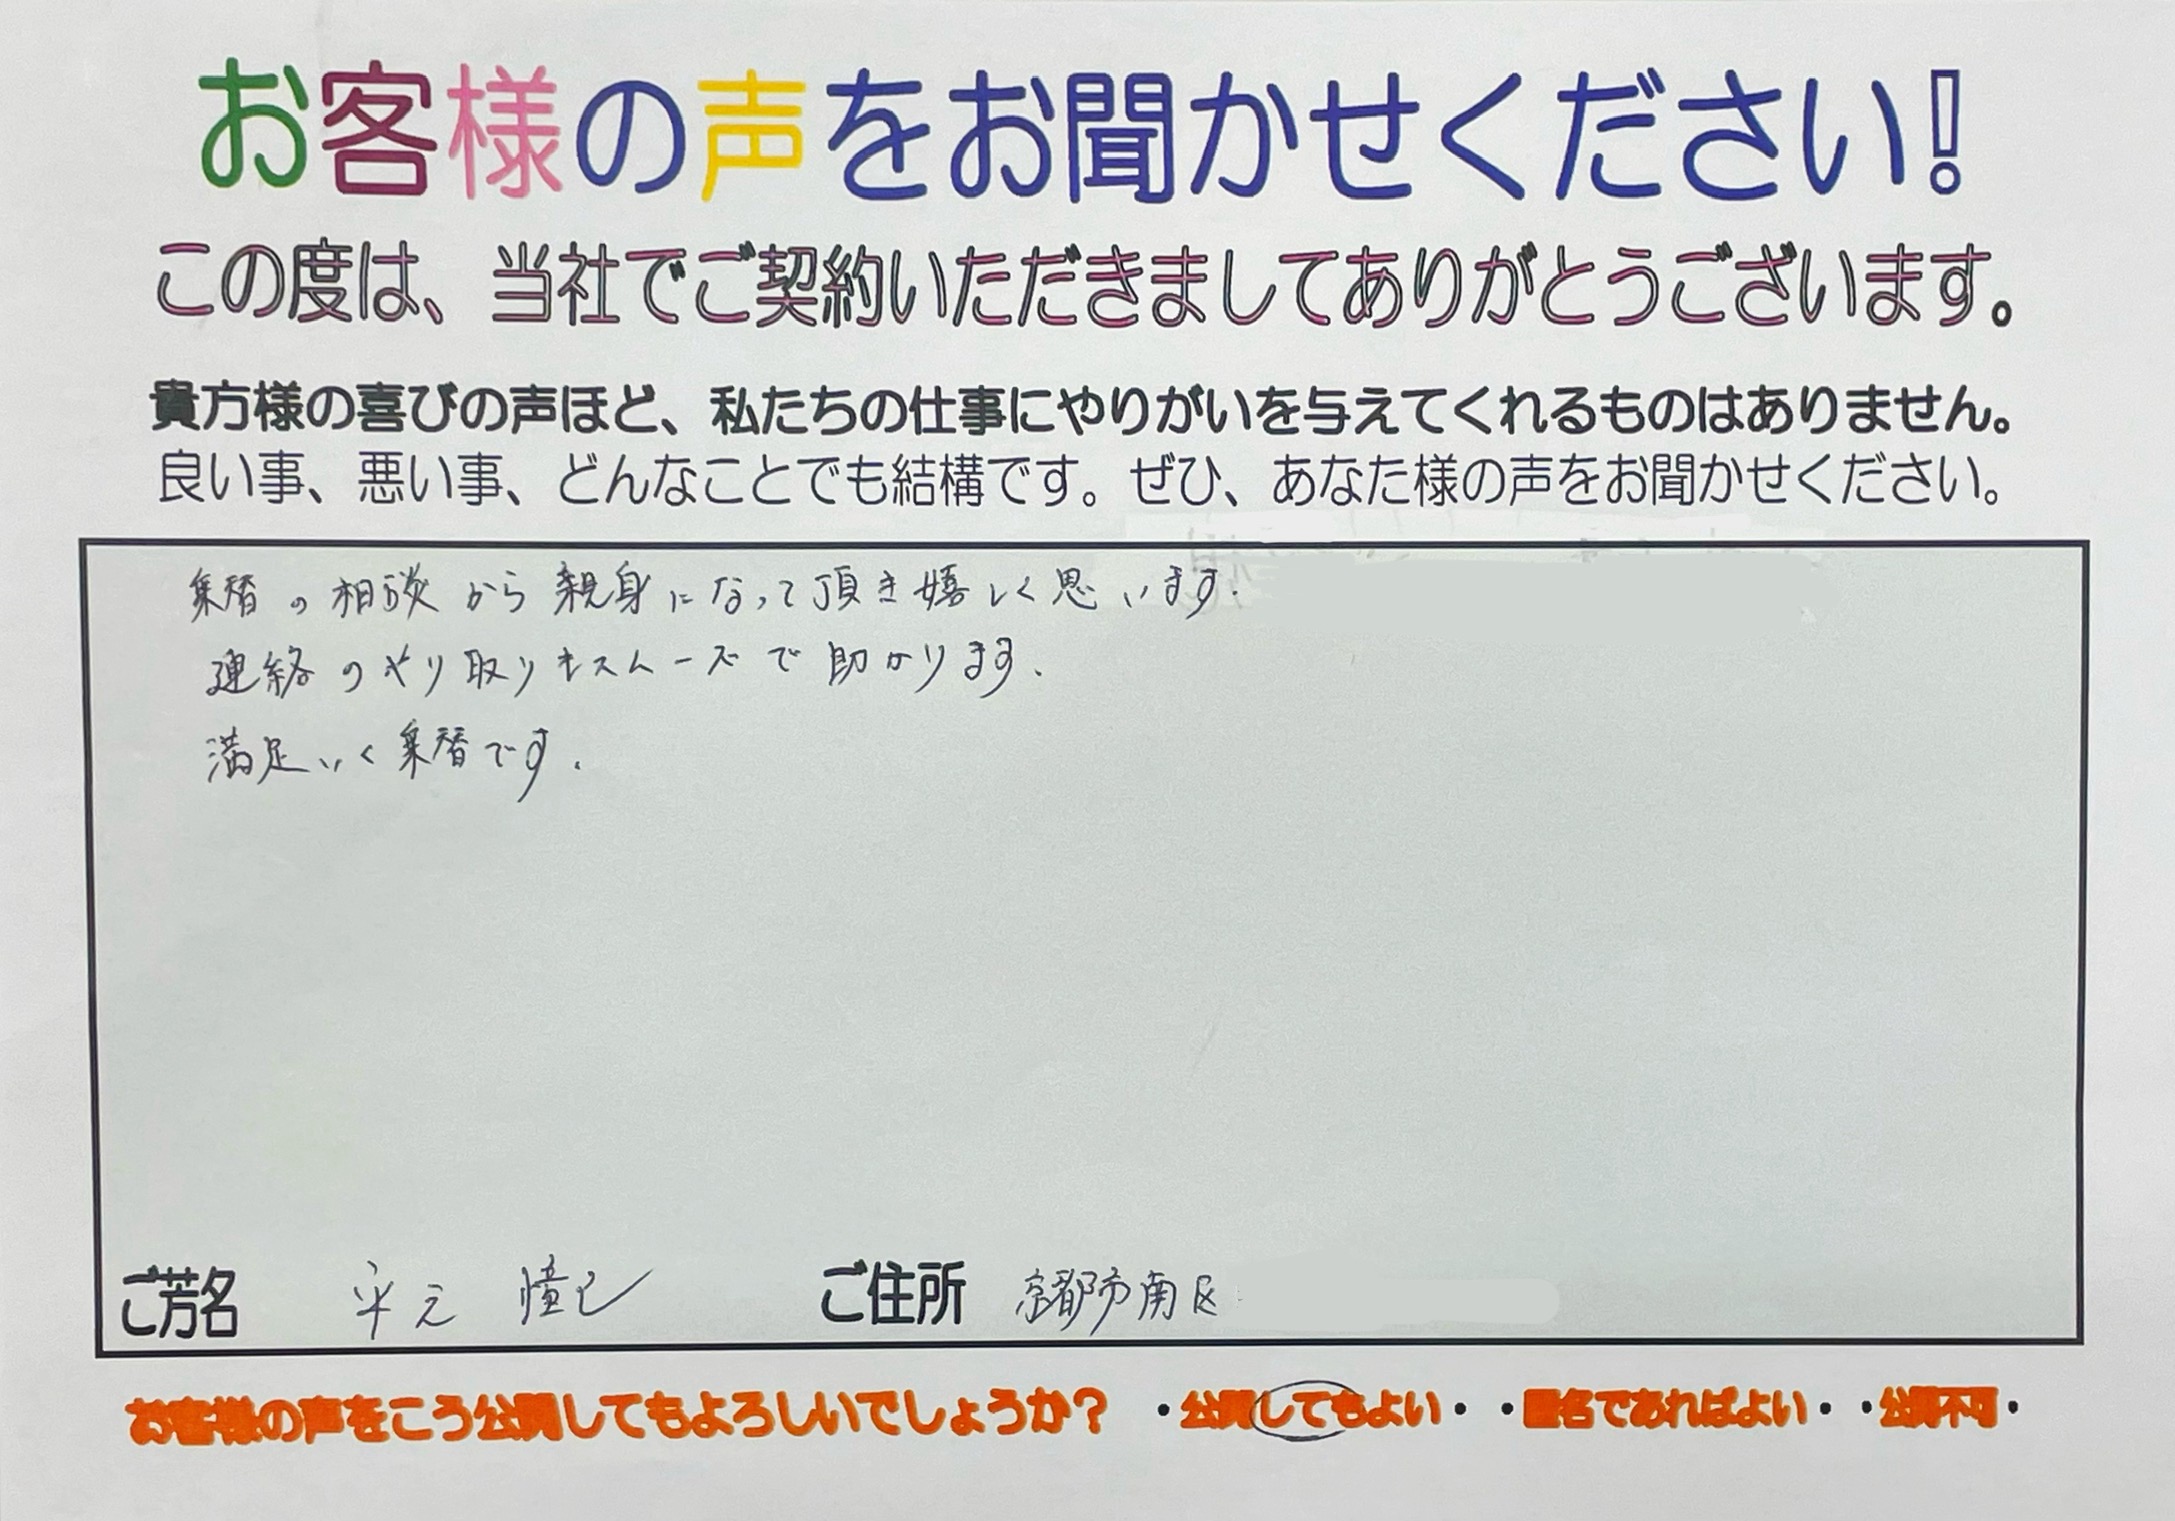 お客様の声をお聞かせください!
この度は、当社でご契約いただきましてありがとうございます。
貴方様の喜びの声ほど、私たちの仕事にやりがいを与えてくれるものはありません。
良い事、悪い事、どんなことでも結構です。ぜひ、あなた様の声をお聞かせください。
乗替の相談から親身になって頂き嬉しく思います.
連絡のやり取りもスムーズで助かります.
満足いく乗替です.
ご芳名 平元 憧己 ご住所 京都市南区
お客様の声をこう公開してもよろしいでしょうか? ・公開してもよい・・匿名であればよい・・公開不可・